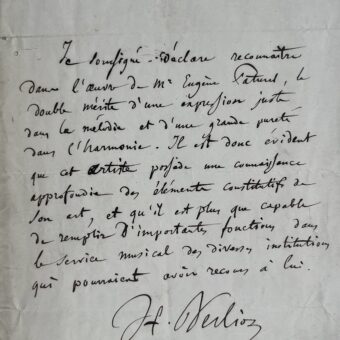 Je soussigné déclare reconnaître
dans l'œuvre de Mr Eugène Paturel, le
double mérite d'une expression juste
dans la mélodie et d'une grande pureté
dans l'harmonie. Il est donc évident
que cet artiste possède une connaissance
approfondie des éléments constitutifs de
son art, et qu'il est plus que capable
de remplir d'importantes fonctions dans
le service musical des diverses institutions
qui pourraient avoir recours à lui.
H. Berlioz